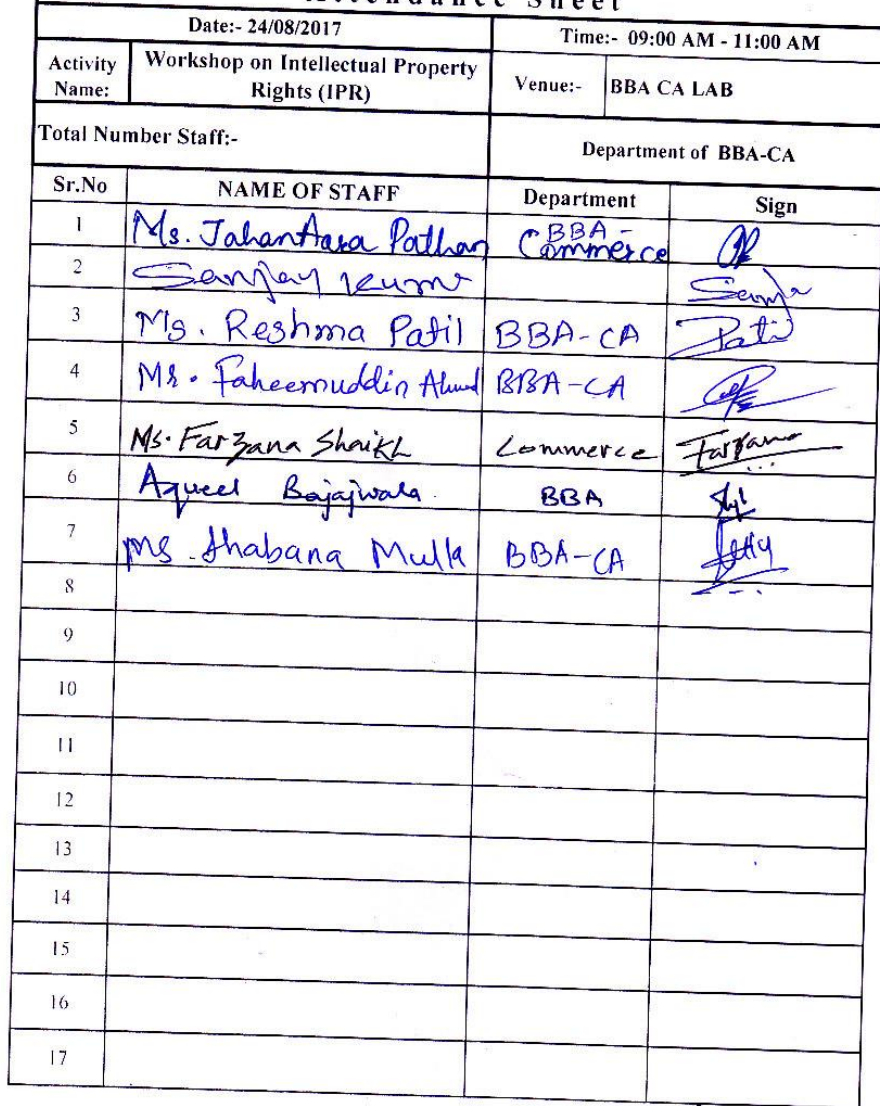 Attendance Sheet
Date:- 24/08/2017 Time:- 09:00 AM - 11:00 AM
Activity Name: Workshop on Intellectual Property Rights (IPR) Venue:- BBA CA LAB
Total Number Staff:- Department of BBA-CA
Sr.No NAME OF STAFF Department Sign
1 Ms. JahanAara Pathan BBA - Commerce
2 Sanjay Kumar
3 Ms. Reshma Patil BBA-CA Patil
4 Mr. Faheemuddin Ahmed BBA-CA
5 Ms. Farzana Shaikh Commerce Farzana
6 Aqueel Bajajwala BBA
7 Ms. Shabana Mulla BBA-CA
8
9
10
11
12
13
14
15
16
17